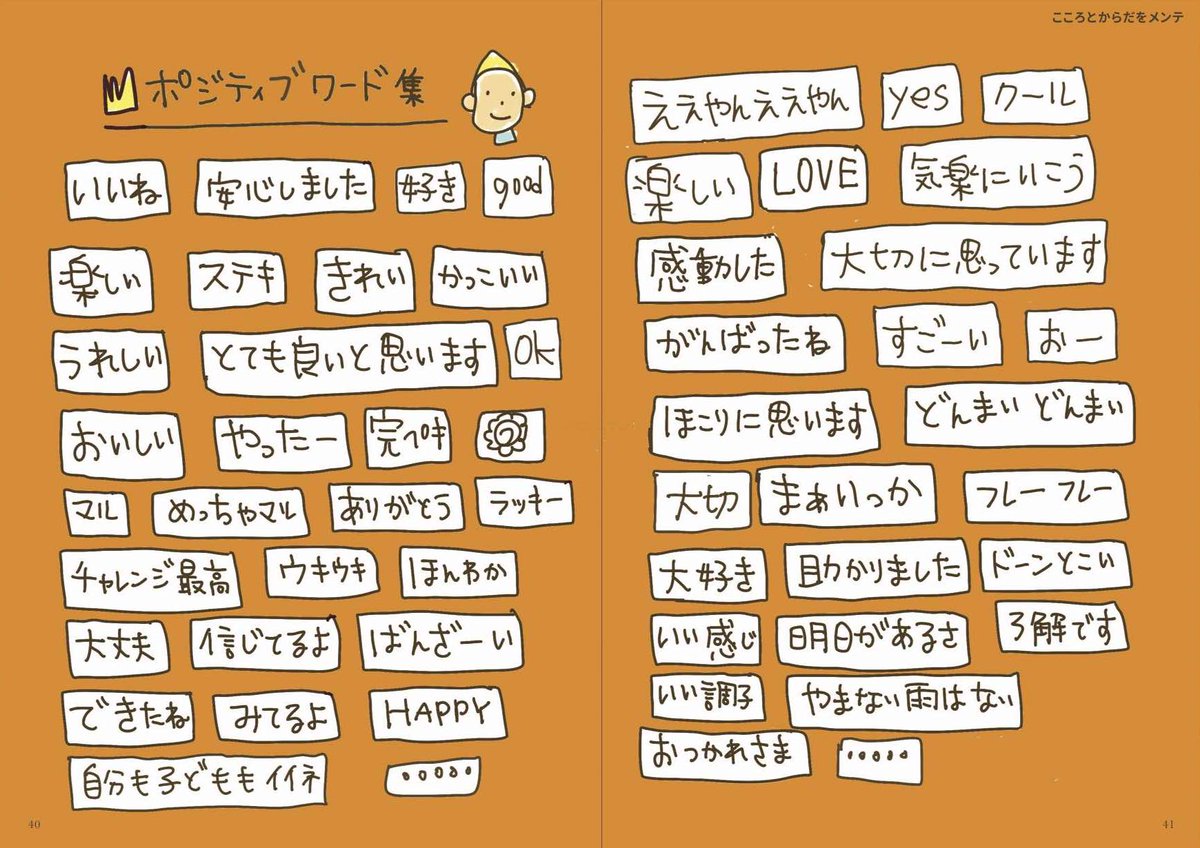 ポジティブワード集
いいね 安心しました 好き good
楽しい ステキ きれい かっこいい
うれしい とても良いと思います OK
おいしい やったー 完ペキ
マル めっちゃマル ありがとう ラッキー
チャレンジ最高 ウキウキ ほんわか
大丈夫 信じてるよ ばんざーい
できたね みてるよ HAPPY
自分も子どももイイネ ・・・・・
40
こころとからだをメンテ
ええやんええやん yes クール
楽しい LOVE 気楽にいこう
感動した 大切に思っています
がんばったね すごーい おー
ほこりに思います どんまい どんまい
大切 まぁいっか フレーフレー
大好き 助かりました ドーンとこい
いい感じ 明日があるさ 了解です
いい調子 やまない雨はない
おつかれさま ・・・・・
41